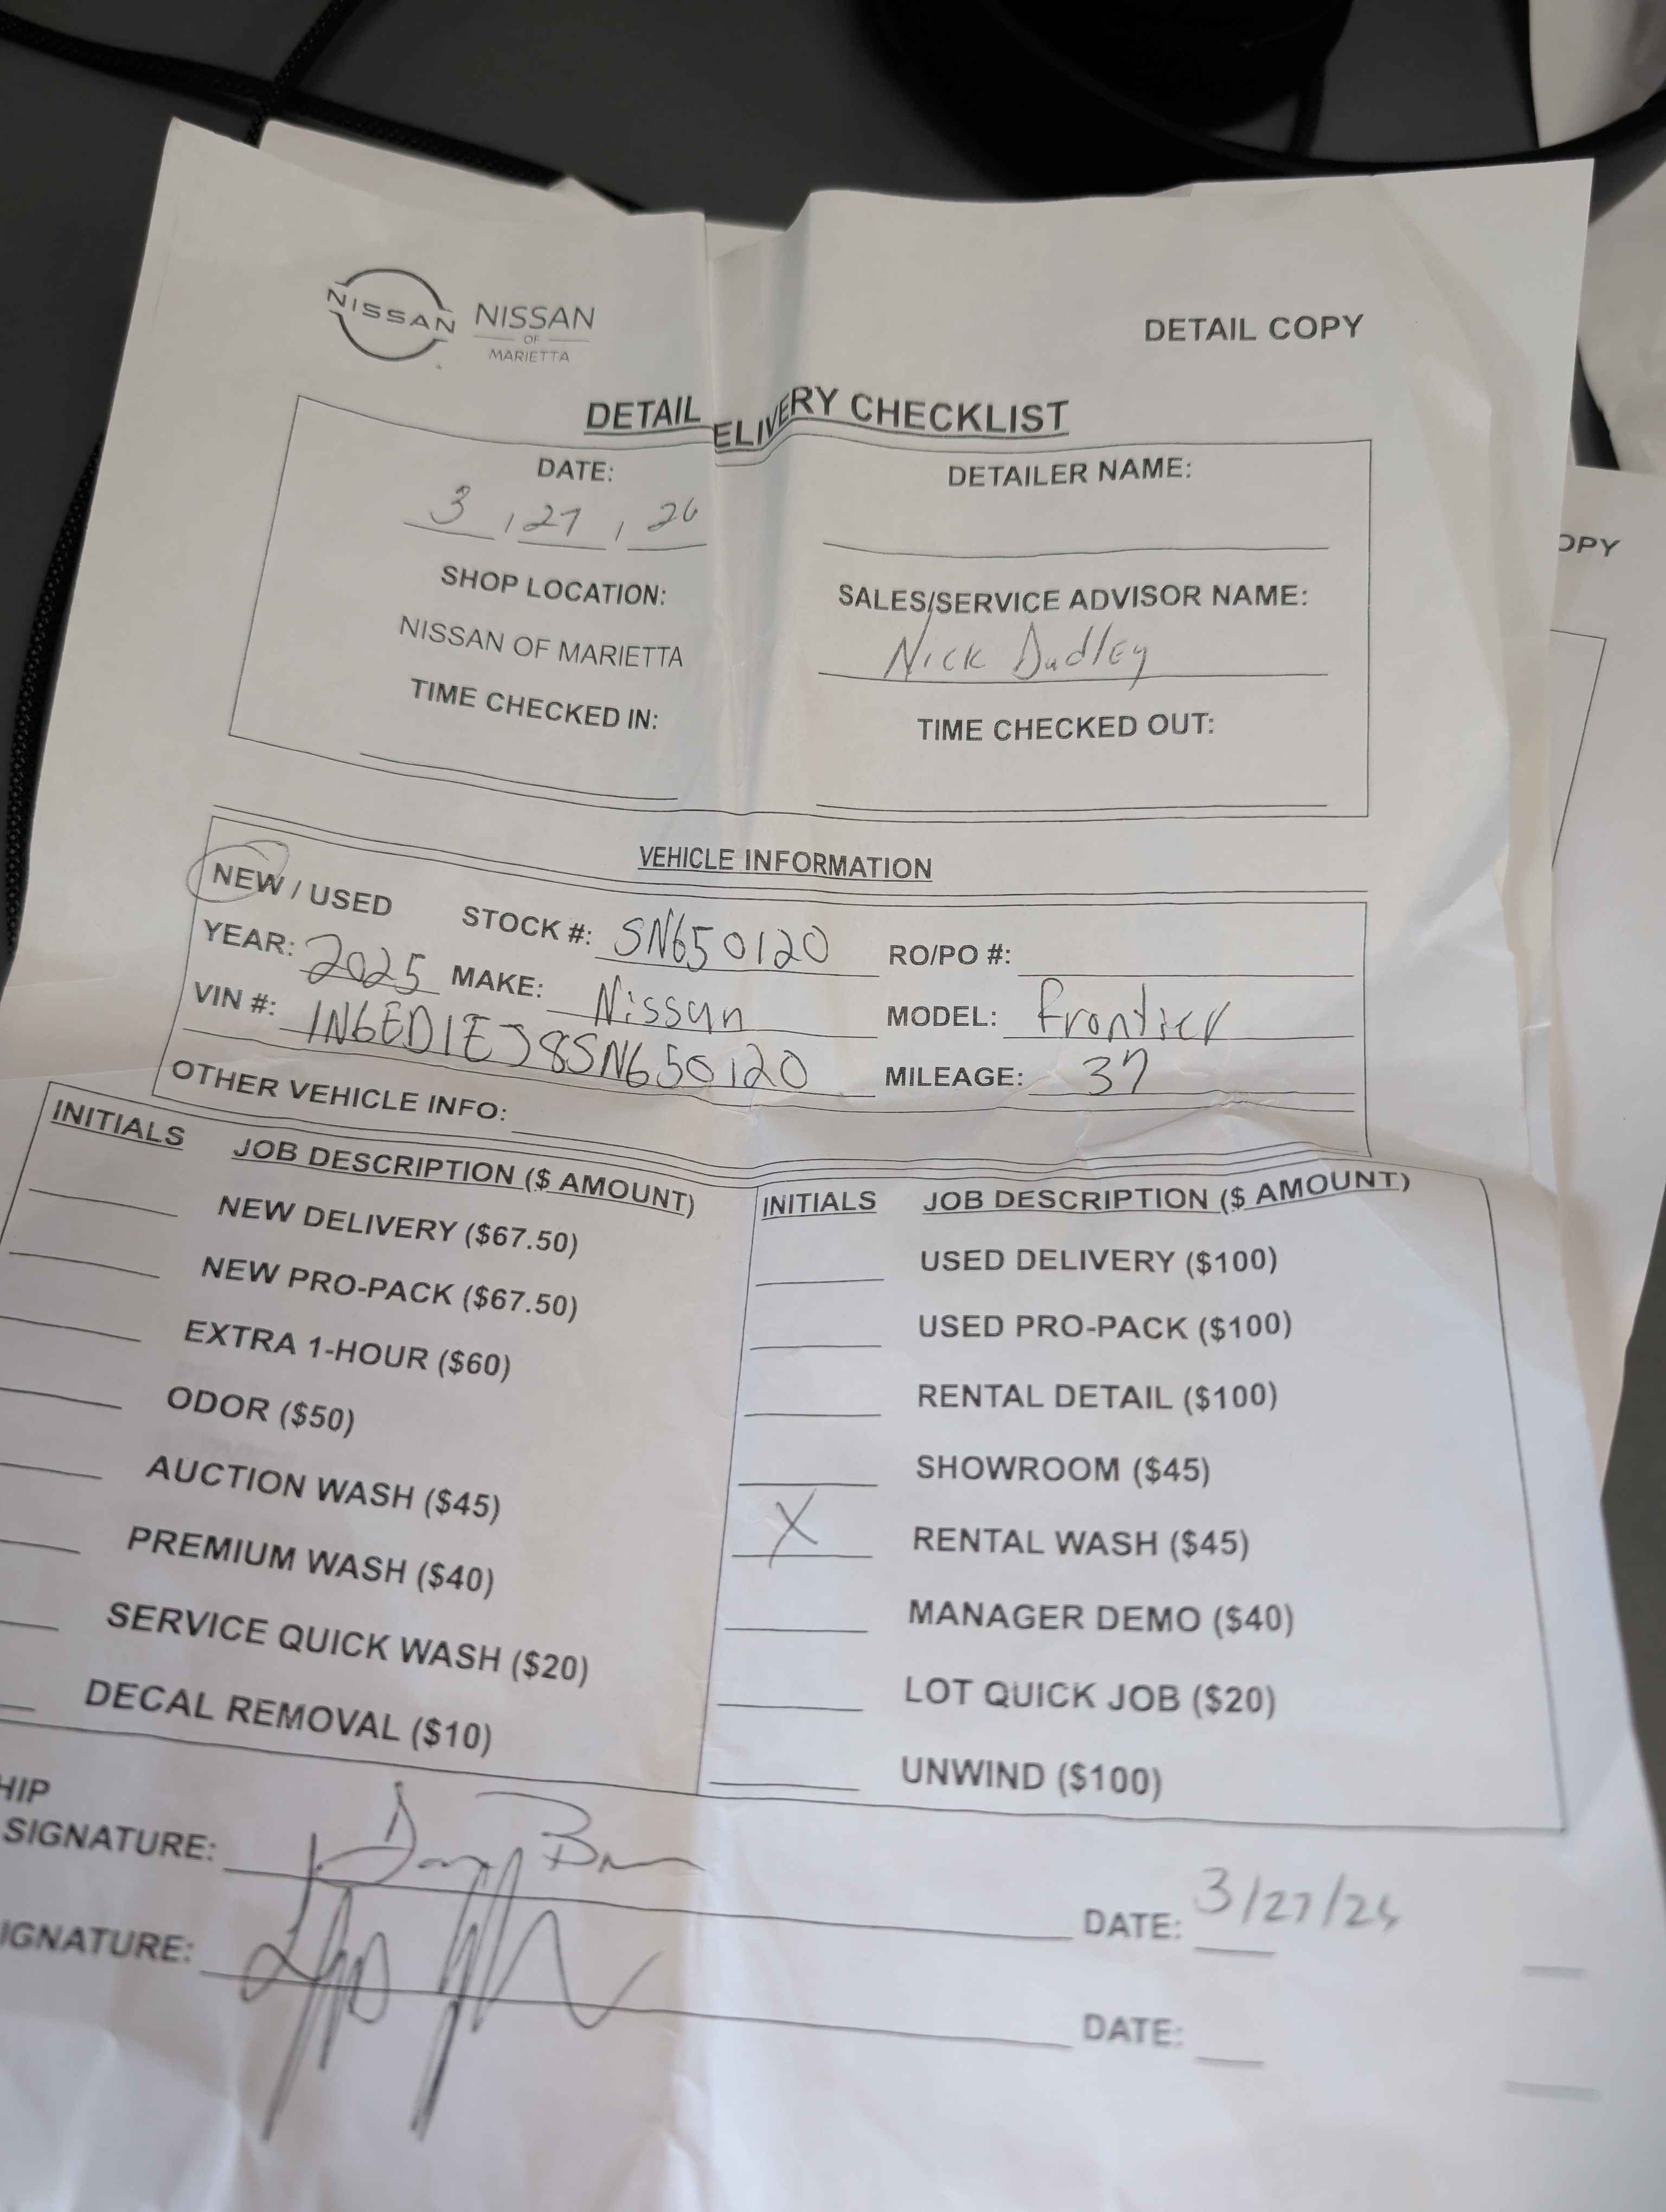 NISSAN NISSAN
OF
MARIETTA
DETAIL COPY
DETAIL ELIVERY CHECKLIST
DATE:
3 / 27 / 26
DETAILER NAME:
SHOP LOCATION:
NISSAN OF MARIETTA
SALES/SERVICE ADVISOR NAME:
Nick Dudley
TIME CHECKED IN:
TIME CHECKED OUT:
OPY
VEHICLE INFORMATION
NEW / USED STOCK #: SN650120 RO/PO #:
YEAR: 2025 MAKE: Nissan MODEL: Frontier
VIN #: 1N6ED1EJ8SN650120 MILEAGE: 37
OTHER VEHICLE INFO:
INITIALS JOB DESCRIPTION ($ AMOUNT)
NEW DELIVERY ($67.50)
NEW PRO-PACK ($67.50)
EXTRA 1-HOUR ($60)
ODOR ($50)
AUCTION WASH ($45)
PREMIUM WASH ($40)
SERVICE QUICK WASH ($20)
DECAL REMOVAL ($10)
INITIALS JOB DESCRIPTION ($ AMOUNT)
USED DELIVERY ($100)
USED PRO-PACK ($100)
RENTAL DETAIL ($100)
SHOWROOM ($45)
X RENTAL WASH ($45)
MANAGER DEMO ($40)
LOT QUICK JOB ($20)
UNWIND ($100)
HIP
SIGNATURE:
DATE: 3/27/26
IGNATURE:
DATE: